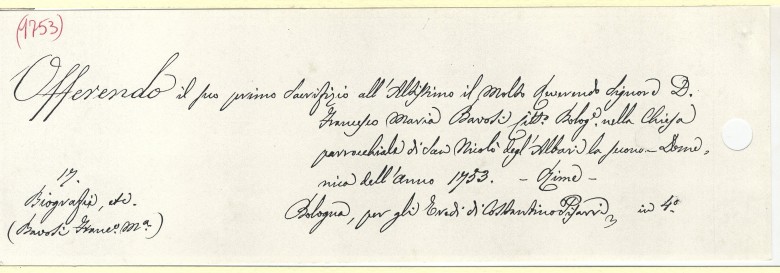 (1753)
Offerendo il suo primo Sacrifizio all'Altissimo il Molto Reverendo Signore D.
Francesco Maria Bavosi Citt.º Bolog.e nella Chiesa
parrocchiale di San Nicolò degl'Albari la secon- Dome,
nica dell'Anno 1753. - Rime -
17.
Biografie, etc.
(Bavosi Franc.º M.a)
Bologna, per gli Eredi di Costantino Pisarri, in 4º